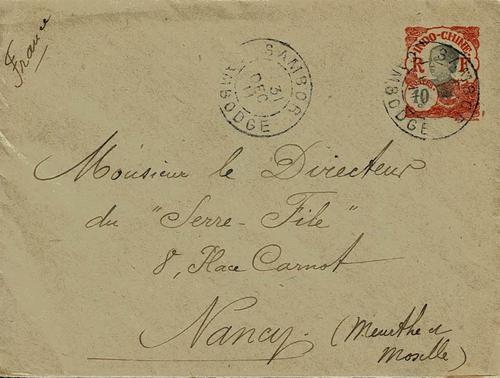 France
SAMBOR
31
DEC
11
CAMBODGE
INDO-CHINE
R F
10
SAMBOR
CAMBODGE
Monsieur le Directeur
du "Serre-File"
8, Place Carnot
Nancy. (Meurthe et
Moselle)